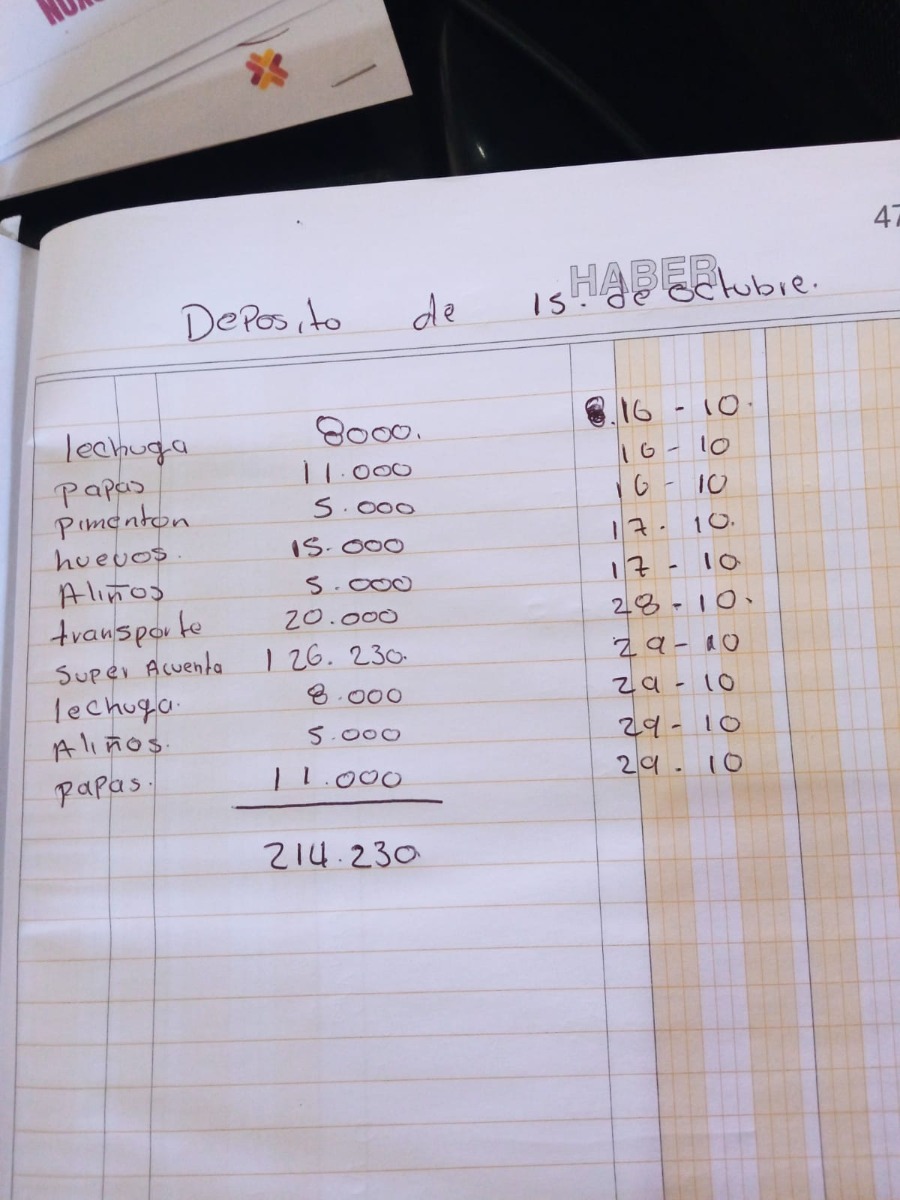 47
HABER
Deposito de 15. de octubre.
lechuga 8000. 16-10.
papas 11.000 16-10
pimenton 5.000 16-10
huevos. 15.000 17-10.
Aliños 5.000 17-10
transporte 20.000 28-10.
Super Acuenta 126.230. 29-10
lechuga. 8.000 29-10
Aliños. 5.000 29-10
papas. 11.000 29.10
214.230